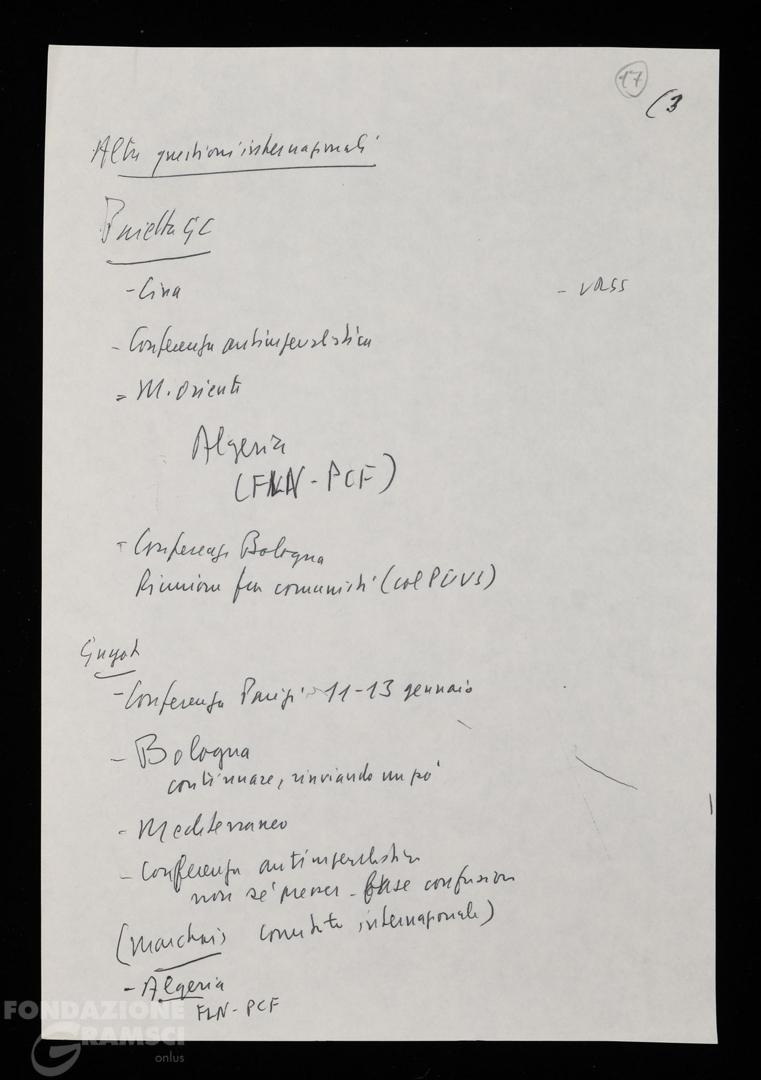 17
(3
Altre questioni internazionali
Pajetta GC
- Cina
- URSS
- Conferenza antimperialistica
= M. Oriente
Algeria
(FLN - PCF)
- Conferenza Bologna
Riunione fra comunisti (col PCUS)
Guyot
- Conferenza Parigi 11-13 gennaio
- Bologna
continuare, rinviando un po'
- Mediterraneo
- Conferenza antimperialistica
non se' confusion
(Marchais comitato internazionale)
- Algeria
FLN - PCF
FONDAZIONE
GRAMSCI
onlus